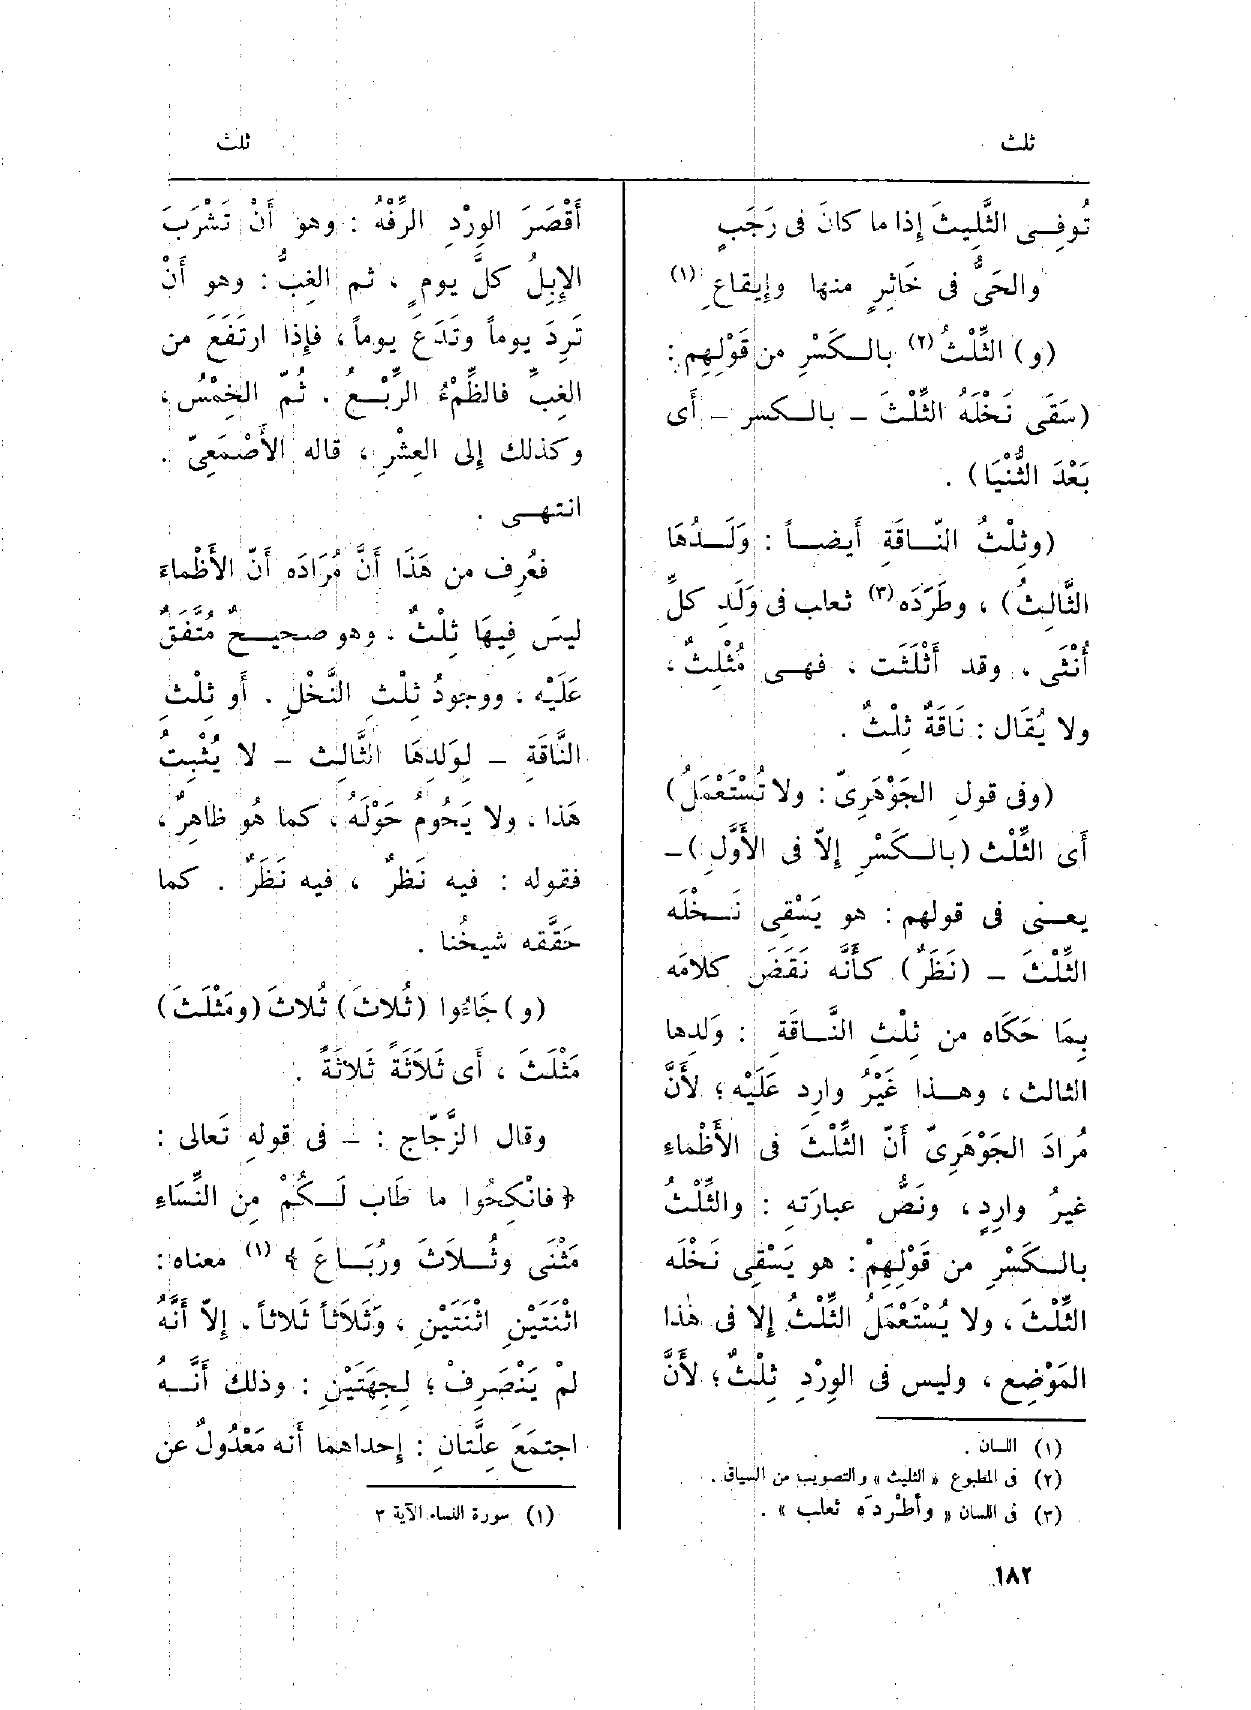 ثلث
ثلث
تُوفِى الثَّلِيثَ إذا ما كانَ فى رَجَبٍ
والحَىُّ فى خَاثِرٍ منها وإيقاعِ (١)
(و) الثِّلْثُ (٢) بالكَسْرِ من قَوْلِهِم :
(سَقَى نَخْلَهُ الثِّلْثَ – بالكسر – أَى
بَعْدَ الثُّنْيَا) .
(وثِلْثُ النّاقَةِ أَيضاً : وَلَدُهَا
الثَّالِثُ) ، وطَرَّدَه (٣) ثعلب فى وَلَدِ كلِّ
أُنْثَى ، وقد أَثْلَثَت ، فهى مُثْلِثٌ ،
ولا يُقَال : نَاقَةٌ ثِلْثٌ .
(وفى قولِ الجَوْهَرِىّ : ولا تُسْتَعْمَلُ)
أَى الثِّلْث (بالكَسْرِ إلاّ فى الأَوَّلِ) –
يعنى فى قولهم : هو يَسْقِى نَخْلَه
الثِّلْثَ – (نَظَرٌ) كأَنَّه نَقَضَ كلامَه
بِمَا حَكَاه من ثِلْثِ النَّاقَةِ : وَلدِها
الثالث ، وهذا غَيْرُ وارِد عَلَيْه ؛ لأَنَّ
مُرادَ الجَوْهَرِىّ أَنّ الثِّلْثَ فى الأَظْماءِ
غيرُ وارِدٍ ، ونَصُّ عبارَتهِ : والثِّلْثُ
بالكَسْرِ من قَوْلِهِمْ : هو يَسْقِى نَخْلَه
الثِّلْثَ ، ولا يُسْتَعْمَلُ الثِّلْثُ إلا فى هٰذا
المَوْضِعِ ، وليس فى الوِرْدِ ثِلْثٌ ؛ لأَنَّ
(١) اللسان .
(٢) فى المطبوع « الثليث » والتصويب من السياق .
(٣) فى اللسان « وأطْردَه ثعلب » .
أَقْصَرَ الوِرْدِ الرِّفْهُ : وهو أَنْ تَشْرَبَ
الإِبِلُ كلَّ يومٍ ، ثم الغِبُّ : وهو أَنْ
تَرِدَ يوماً وتَدَعَ يوماً ، فإِذا ارتَفَعَ من
الغِبِّ فالظِّمْءُ الرِّبْعُ . ثُمّ الخِمْسُ ،
وكذلك إلى العِشْرِ ، قاله الأَصْمَعِىّ .
انتهى .
فعُرِف من هَذَا أَنَّ مُرَادَه أَنّ الأَظْماءَ
ليسَ فِيهَا ثِلْثٌ ، وهو صحيحٌ مُتَّفَقٌ
عَلَيْه ، ووجودُ ثِلْثِ النَّخْلِ . أَو ثِلْثِ
النَّاقَةِ – لِوَلدهَا الثَّالِث – لا يُثْبِتُ
هَذا ، ولا يَحُومُ حَوْلَهُ ، كما هُو ظاهِرٌ ،
فقوله : فيه نَظَرٌ ، فيه نَظَرٌ . كما
حَقَّقه شيخُنا .
(و) جَاءُوا (ثُلاثَ) ثُلاثَ (ومَثْلَثَ)
مَثْلَثَ ، أَى ثَلاَثَةً ثَلاثَةً .
وقال الزَّجّاج : – فى قولهِ تَعالى :
﴿ فانْكِحُوا ما طَابَ لَكُمْ مِن النِّسَاءِ
مَثْنَى وثُلاَثَ ورُبَاعَ ﴾ (١) معناه :
اثْنَتَيْنِ اثْنَتَيْنِ ، وَثَلاَثاً ثَلاثاً . إلاّ أَنَّهُ
لمْ يَنْصَرِفْ ؛ لِجِهَتَيْنِ : وذلك أَنَّهُ
اجتمَعَ عِلَّتانِ : إحداهما أَنه مَعْدُولٌ عن
(١) سورة النساء الآية ٣
١٨٢